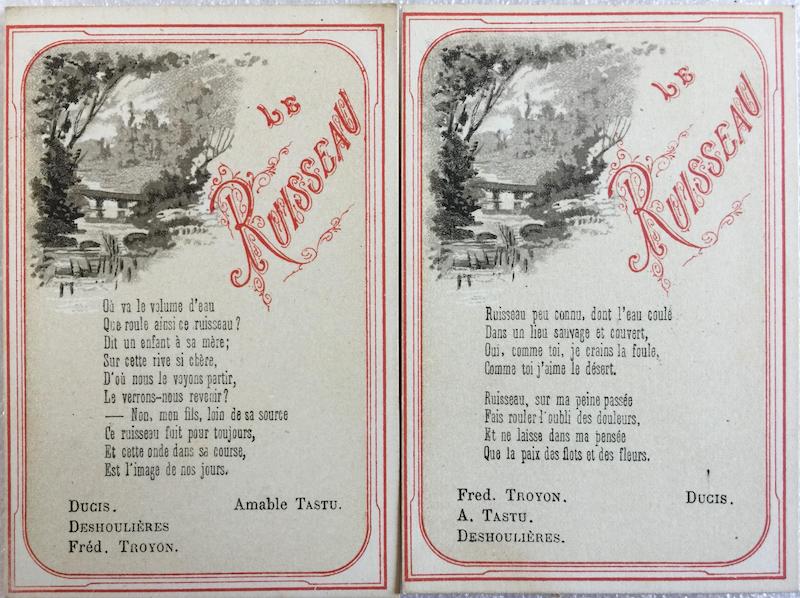 LE
RUISSEAU
Où va le volume d'eau
Que roule ainsi ce ruisseau?
Dit un enfant à sa mère;
Sur cette rive si chère,
D'où nous le voyons partir,
Le verrons-nous revenir?
— Non, mon fils, loin de sa source
Ce ruisseau fuit pour toujours,
Et cette onde dans sa course,
Est l'image de nos jours.
DUCIS. Amable TASTU.
DESHOULIÈRES
Fréd. TROYON.
LE
RUISSEAU
Ruisseau peu connu, dont l'eau coule
Dans un lieu sauvage et couvert,
Oui, comme toi, je crains la foule,
Comme toi j'aime le désert.
Ruisseau, sur ma peine passée
Fais rouler l'oubli des douleurs,
Et ne laisse dans ma pensée
Que la paix des flots et des fleurs.
Fred. TROYON. DUCIS.
A. TASTU.
DESHOULIÈRES.